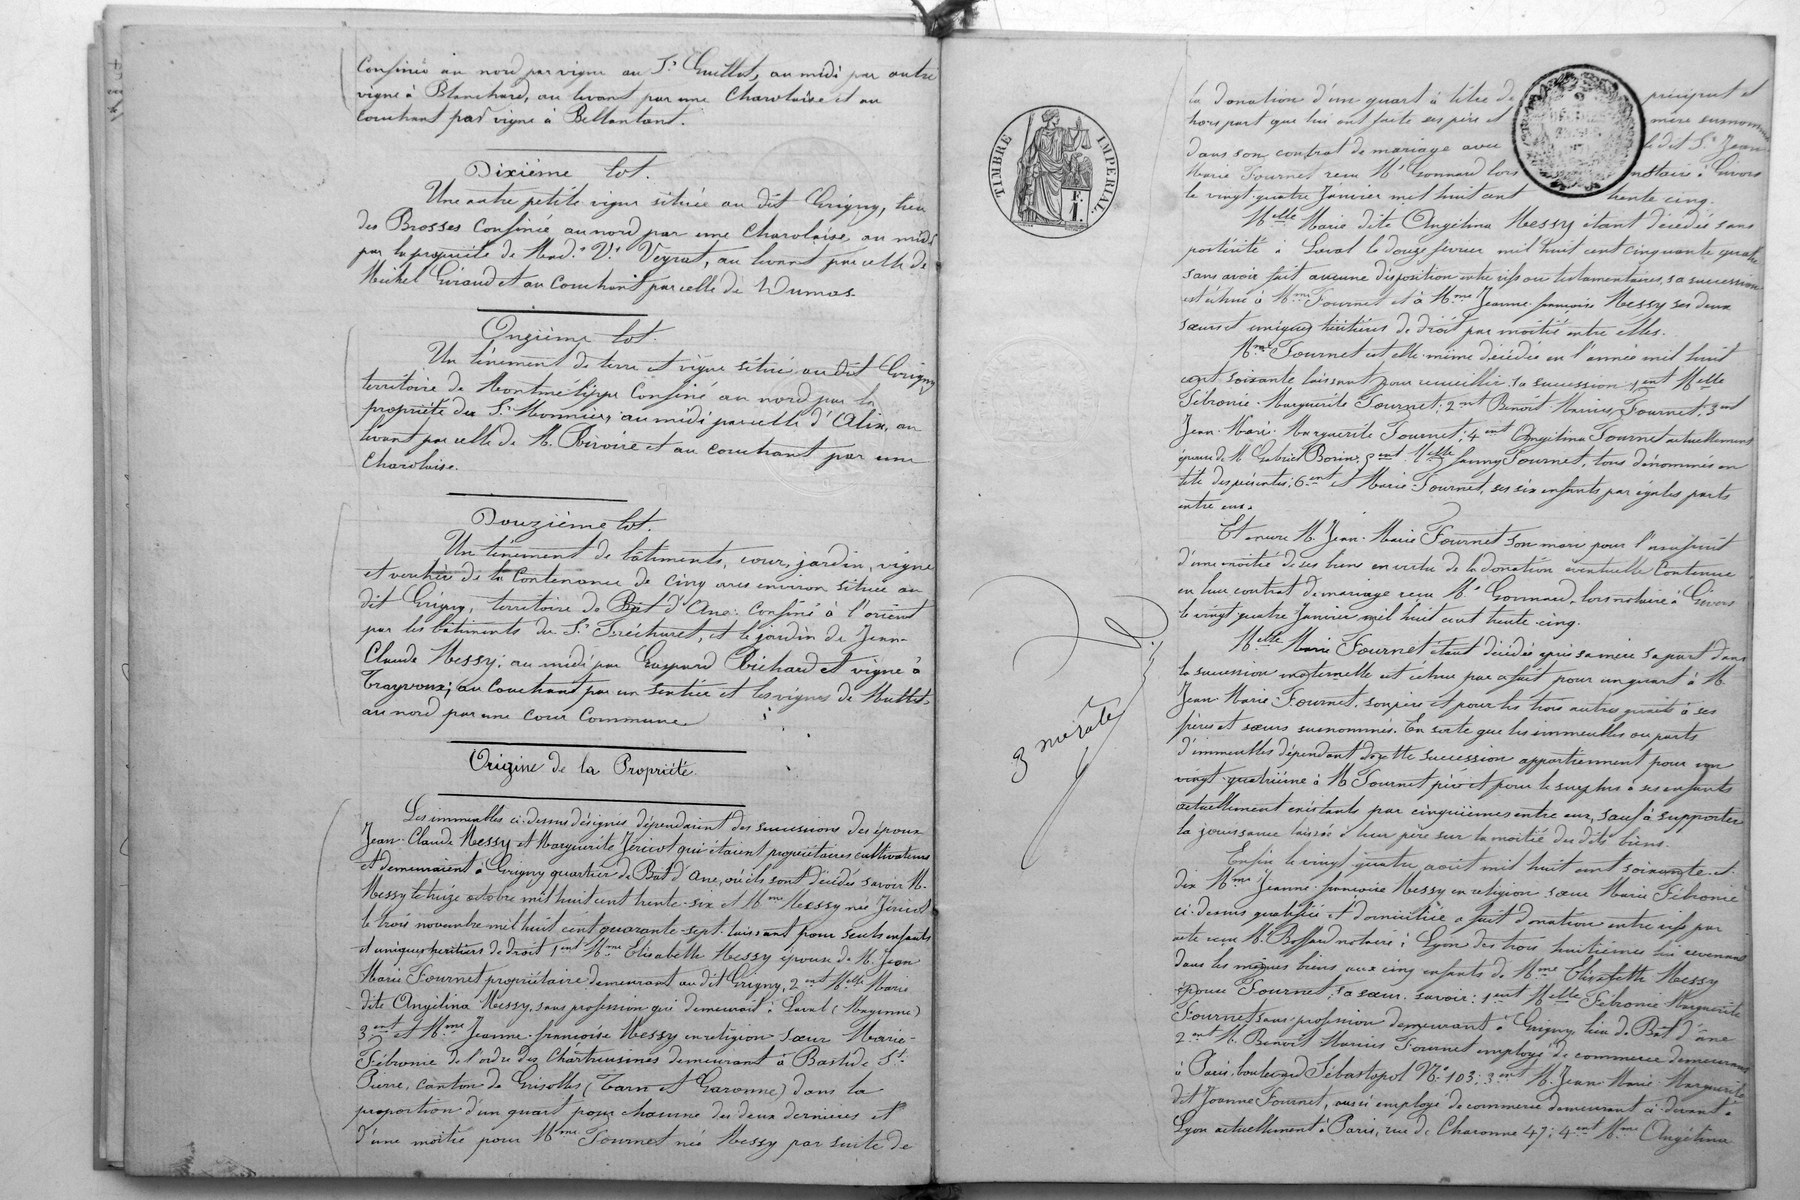 Confinée au nord par vigne au Sr Guillot, au midi par autre
vigne à Blanchard, au levant par une Charolaise et au
couchant par vigne à Bellantant.
Dixième lot.
Une autre petite vigne située au dit Grigny, lieu
des Brosses Confinée au nord par une Charolaise, au midi
par la propriété de Made Ve Veyrat, au levant par celle de
Michel Giraud et au Couchant par celle de Dumas.
Onzième lot.
Un tènement de terre et vigne située au dit Grigny
territoire de Confiné au nord par la
propriété du Sr Monnier, au midi par celle d'Alix, au
levant par celle de M. Rivoire et au couchant par une
Charolaise.
Douzième lot.
Un tènement de bâtiments, cour, jardin, vigne
et de la Contenance de cinq ares environ située au
dit Grigny, territoire de Bât d'Ane. confiné à l'orient
par les bâtiments du Sr et le jardin de Jean-
Claude Messy; au midi par Gaspard Richard et vigne à
Trayvoux; au Couchant par un sentier et les vignes de
au nord par une cour Commune.
Origine de la Propriété
Les immeubles ci-dessus désignés dépendaient des successions des époux
Jean-Claude Messy et Marguerite Jéricot qui étaient propriétaires cultivateurs
et demeuraient à Grigny quartier de Bat d'Ane, où ils sont décédés savoir M.
Messy le treize octobre mil huit cent trente-six et Mme Messy née Jéricot
le trois novembre mil huit cent quarante-sept. laissant pour seuls enfants
et uniques héritiers de droit 1ent Mme Elisabette Messy épouse de M. Jean
Marie Fournet propriétaire demeurant au dit Grigny, 2ent Melle Marie
dite Angélina Messy, sans profession qui demeurait à Laval (Mayenne)
3ent et Mme Jeanne-françoise Messy en religion sœur Marie-
Fébronie de l'ordre des Chartreusines demeurant à Bastide St
Pierre, canton de Grisolles (Tarn et Garonne) dans la
proportion d'un quart pour chacune des deux dernières et
d'une moitié pour Mme Fournet née Messy par suite de
TIMBRE IMPERIAL
F.
1.
la donation d'un quart à titre de préciput et
hors part que lui ont faite ses père et mère susnommés
dans son contrat de mariage avec le dit Sr Jean
Marie Fournet reçu Me Gonnard lors notaire à Givors
le vingt-quatre Janvier mil huit cent trente cinq.
Melle Marie dite Angélina Messy étant décédée sans
postérité à Laval le douze février mil huit cent cinquante quatre
sans avoir fait aucune disposition entre vifs ou testamentaires, sa succession
est échue à Mme Fournet et à Mme Jeanne-françoise Messy ses deux
sœurs et uniques héritières de droit par moitié entre elles.
Mme Fournet est elle-même décédée en l'année mil huit
cent soixante laissant pour recueillir sa succession 1ent Melle
Fébronie-Marguerite Fournet; 2ent Benoit-Marius Fournet; 3ent
Jean-Marie-Marguerite Fournet; 4ent Angélina Fournet actuellement
épouse de M. Gabriel 5ent Melle fanny Fournet, tous dénommés en
tête des présentes; 6ent et Marie Fournet, ses six enfants par égales parts
entre eux.
Et encore M. Jean-Marie Fournet son mari pour l'usufruit
d'une moitié de ses biens en vertu de la donation éventuelle Contenue
en leur contrat de mariage reçu Me Gonnard, lors notaire à Givors
le vingt quatre Janvier mil huit cent trente-cinq.
Melle Marie Fournet étant décédée après sa mère sa part dans
la succession maternelle est échue par ce fait pour un quart à M.
Jean-Marie Fournet, son père et pour les trois autres quarts à ses
frères et sœurs susnommés. En sorte que les immeubles ou parts
d'immeubles dépendant de cette succession appartiennent pour un
vingt-quatrième à M. Fournet père et pour le surplus à ses enfants
actuellement existants par cinquièmes entre eux, sauf à supporter
la jouissance laissée à leur père sur la moitié des dits biens.
Enfin le vingt quatre août mil huit cent soixante-et-
dix Mme Jeanne-françoise Messy en religion sœur Marie Fébronie
ci-dessus qualifiée et domiciliée a fait donation entre vifs par
acte reçu M. notaire à Lyon des trois huitièmes lui revenant
dans les mêmes biens, aux cinq enfants de Mme Elisabette Messy
épouse Fournet, sa sœur. savoir: 1ent Melle Fébronie Marguerite
Fournet sans profession demeurant à Grigny lieu de Bât d'âne
2ent M. Benoit Marius Fournet employé de commerce demeurant
à Paris, boulevard Sébastopol No 103; 3ent M. Jean-Marie-Marguerite
dit Joanne Fournet, aussi employé de commerce demeurant ci-devant à
Lyon actuellement à Paris, rue de Charonne 47; 4ent Mme Angélina
3 me rôle